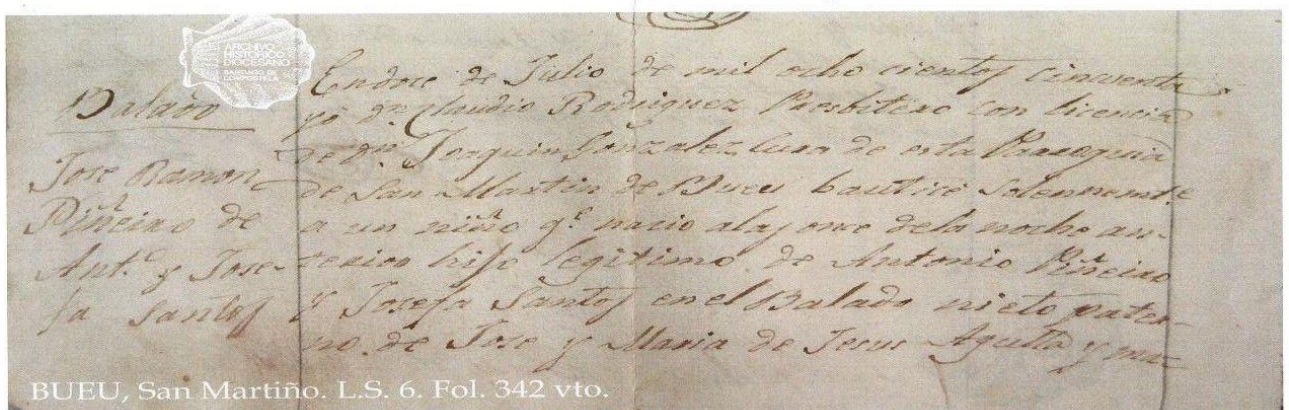 ARCHIVO
HISTÓRICO
DIOCESANO
SANTIAGO DE
COMPOSTELA
Balado
Jose Ramon
Piñeiro de
Ant.º y Jose-
fa Santos
En doce de Julio de mil ocho cientos cincuenta
yo dⁿ Claudio Rodriguez Presbitero con licencia
de dⁿ Joaquin Gonzalez Cura de esta Parroquia
de San Martin de Bueu bautice Solennem.te
a un niño q.e nacio a las once de la noche an-
terior hijo legitimo de Antonio Piñeiro
y Josefa Santos en el Balado nieto pater-
no de Jose y Maria de Jesus Agulla y ma-
BUEU, San Martiño. L.S. 6. Fol. 342 vto.